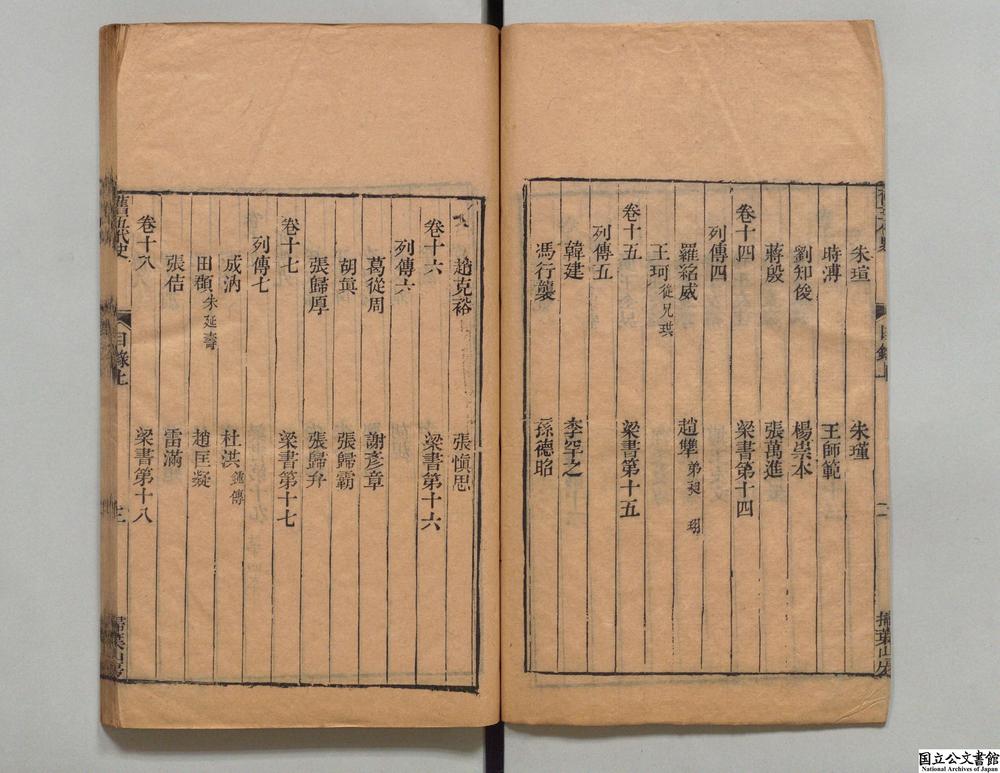 朱瑄　朱瑾
時溥　王師範
劉知俊　楊崇本
蔣殷　張萬進
卷十四　梁書第十四
列傳四
羅紹威　趙犨 弟昶 珝
王珂 從兄珙
卷十五　梁書第十五
列傳五
韓建　李罕之
馮行襲　孫德昭
趙克裕　張愼思
卷十六　梁書第十六
列傳六
葛從周　謝彥章
胡眞　張歸霸
張歸厚　張歸弁
卷十七　梁書第十七
列傳七
成汭　杜洪 鍾傳
田頵 朱延壽　趙匡凝
張佶　雷滿
卷十八　梁書第十八
舊五代史　目錄上　掃葉山房
国立公文書館
National Archives of Japan